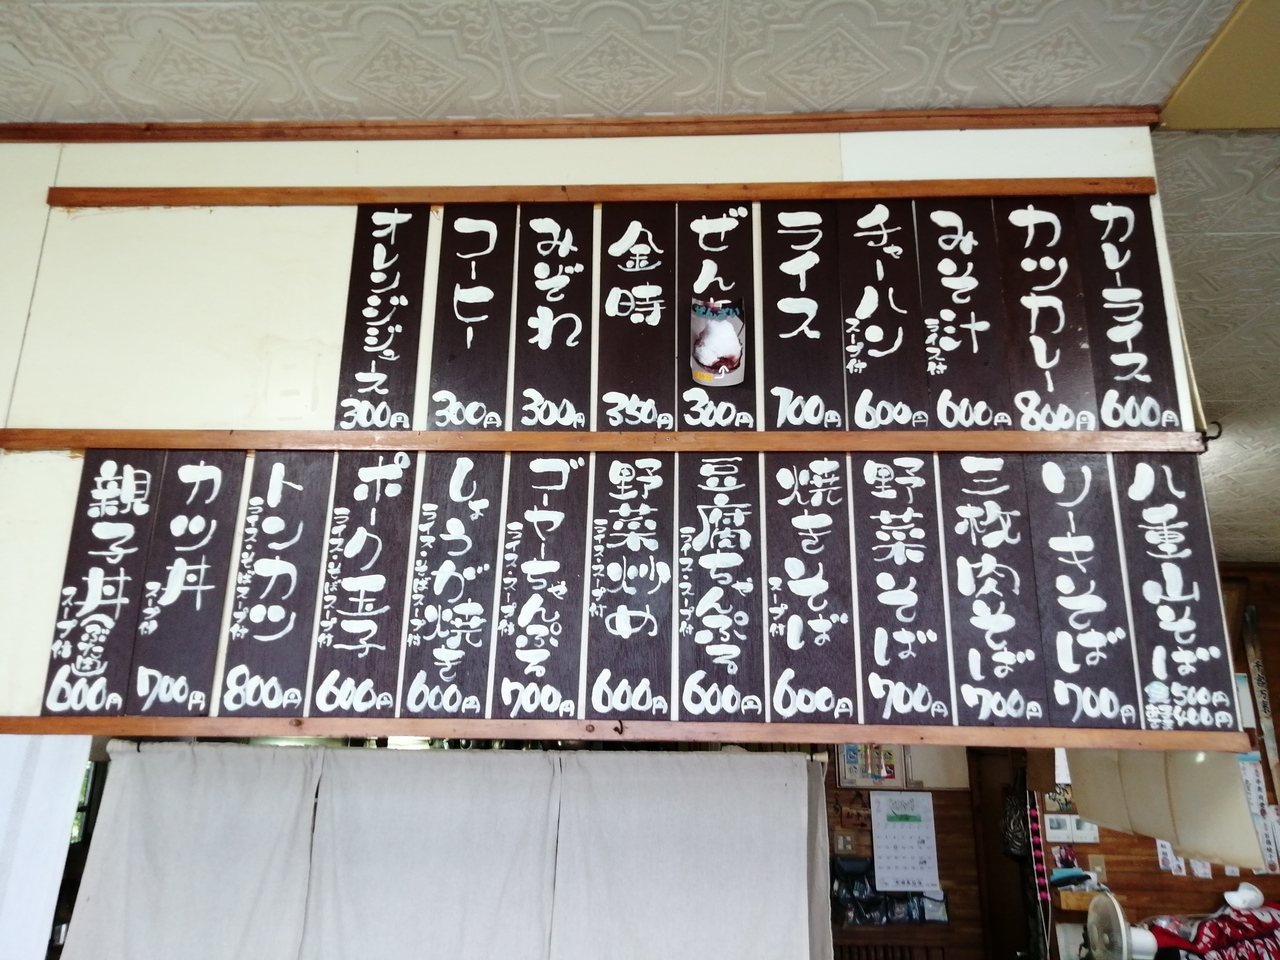 カレーライス
600円
カツカレー
800円
みそ汁
ライス付
600円
チャーハン
スープ付
600円
ライス
700円
ぜん
ぜんざい
300円
金時
350円
みぞれ
300円
コーヒー
300円
オレンジジュース
300円
八重山そば
500円
400円
ソーキそば
700円
三枚肉そば
700円
野菜そば
700円
焼きそば
スープ付
600円
豆腐ちゃんぷる
ライス・スープ付
600円
野菜炒め
ライス・スープ付
600円
ゴーヤーちゃんぷる
ライス・スープ付
700円
しょうが焼き
ライス・そばスープ付
600円
ポーク玉子
ライス・そばスープ付
600円
トンカツ
ライス・そばスープ付
800円
カツ丼
スープ付
700円
親子丼
スープ付
600円